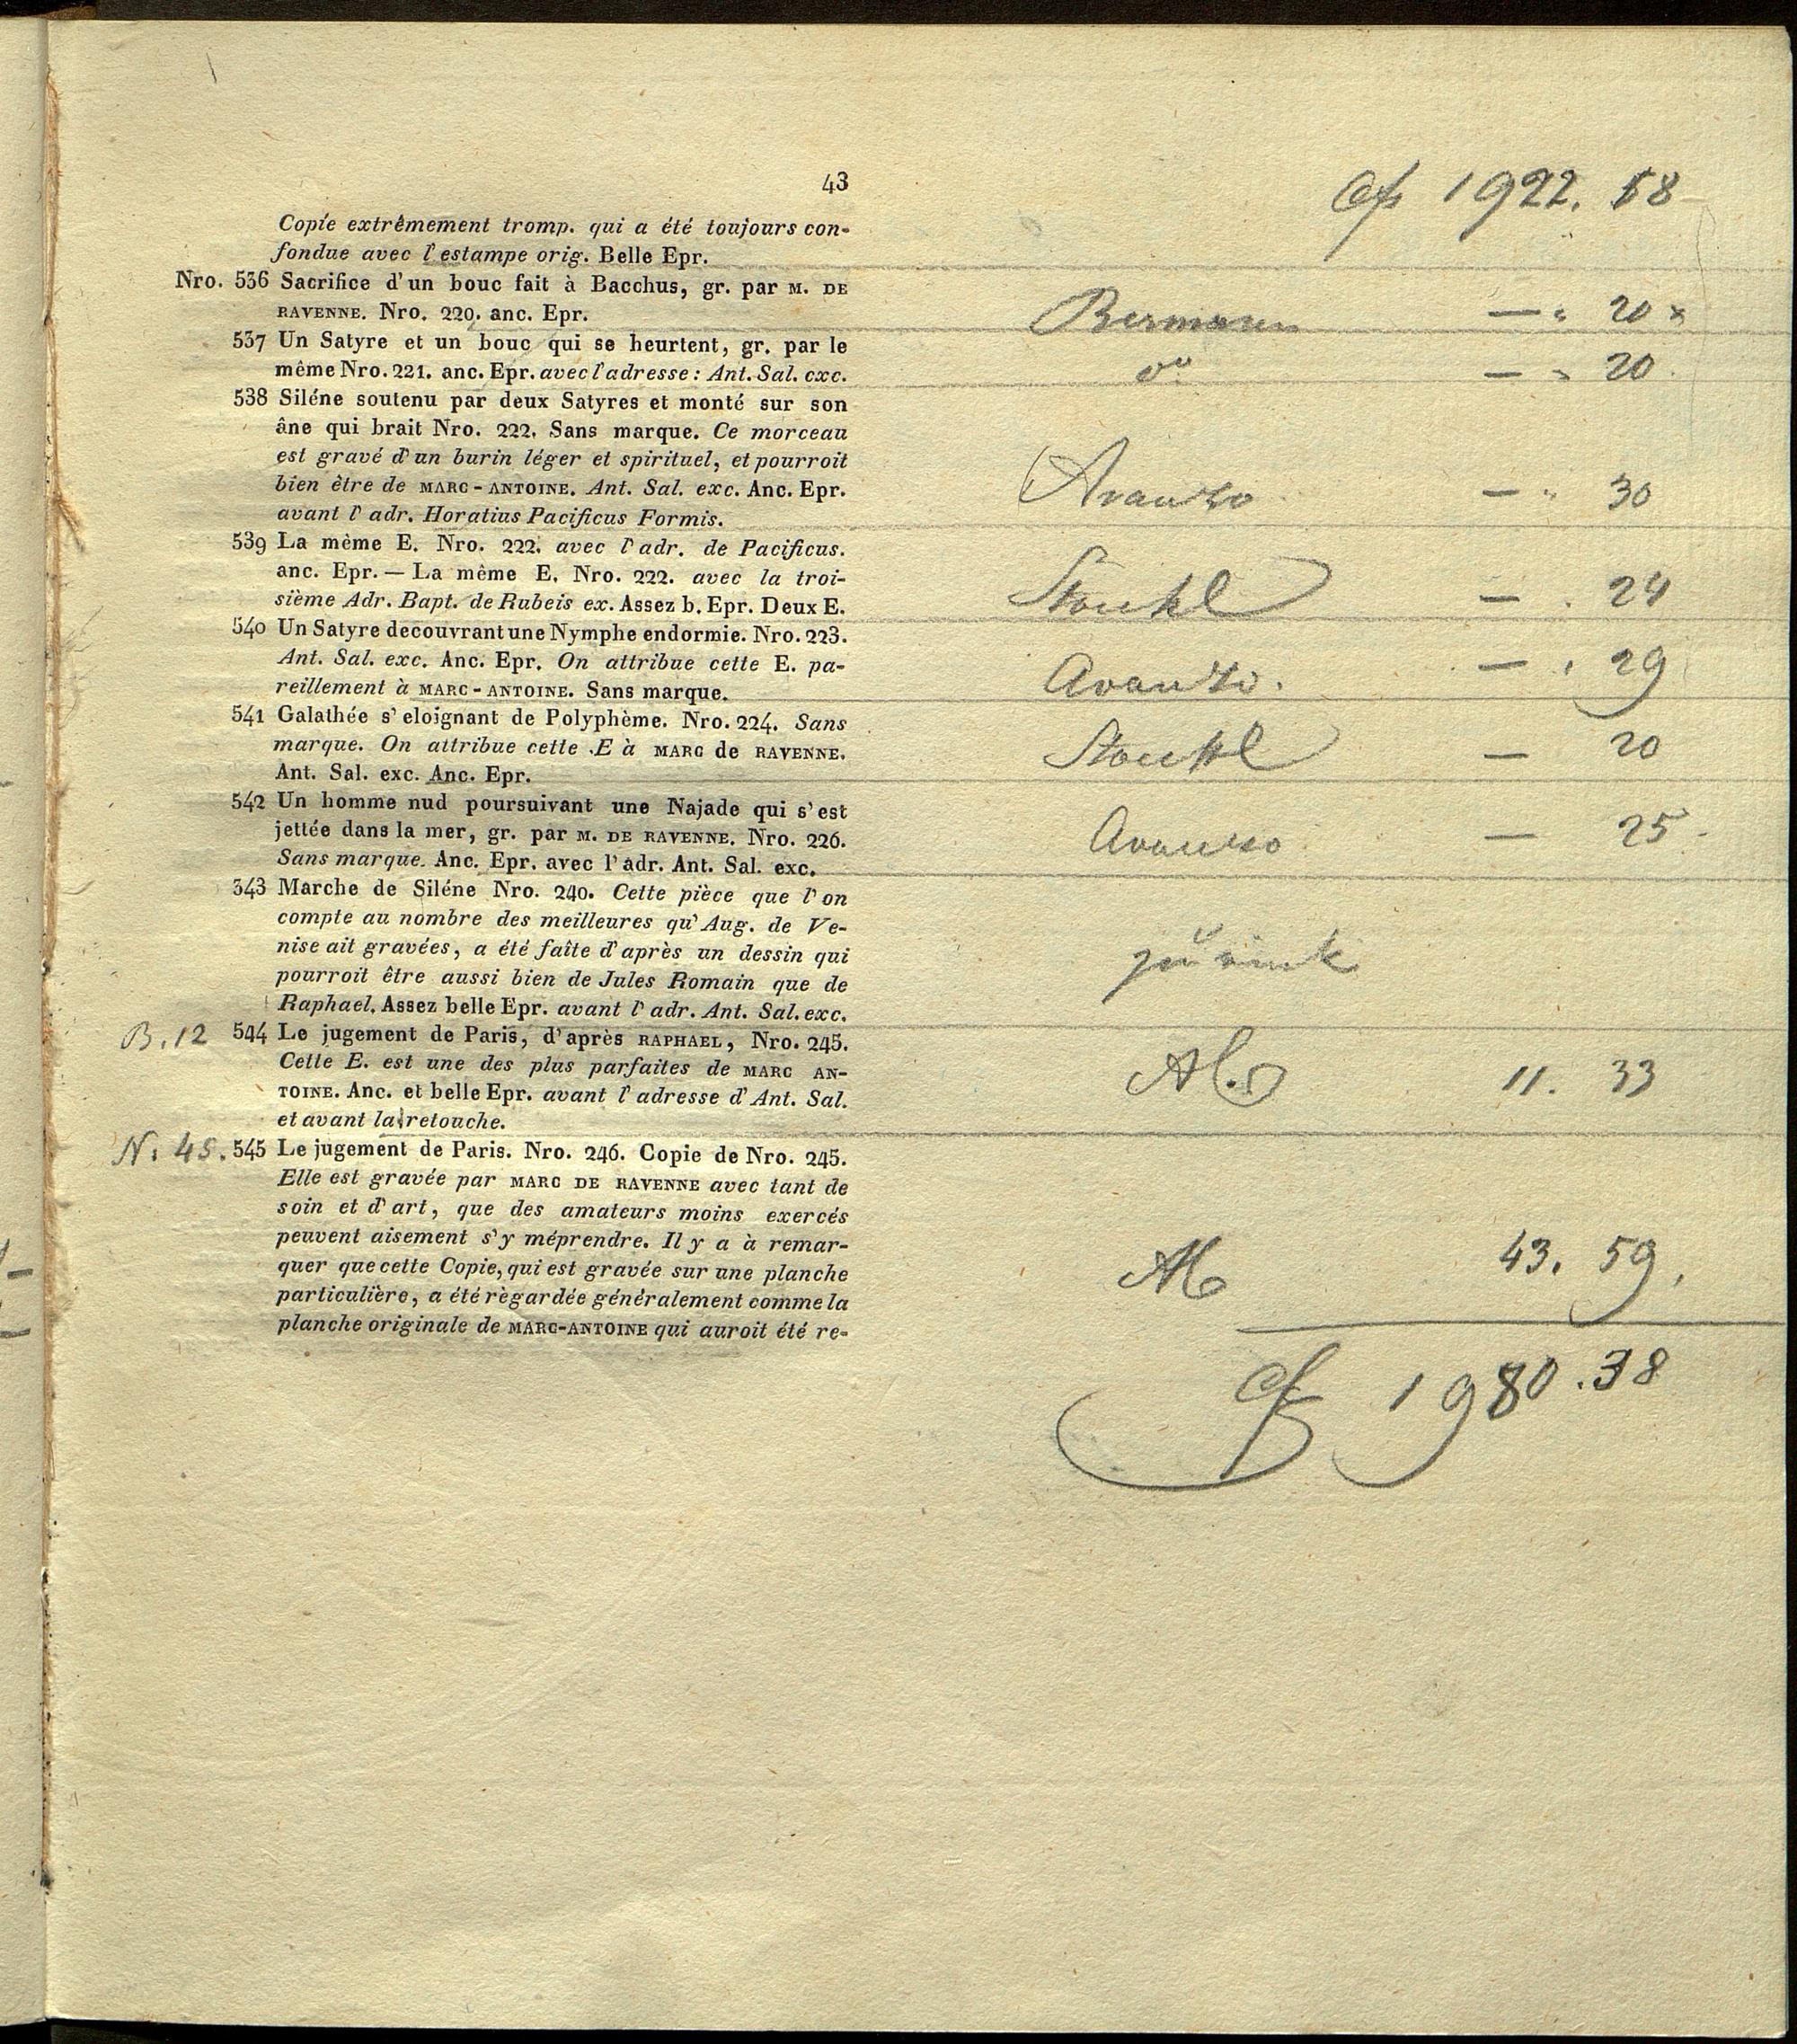 43
cf 1922. 58
Copie extrêmement tromp. qui a été toujours con-
fondue avec l'estampe orig. Belle Epr.
Nro. 536 Sacrifice d'un bouc fait à Bacchus, gr. par M. DE
RAVENNE. Nro. 220. anc. Epr.
Bermann — " 20 x
537 Un Satyre et un bouc qui se heurtent, gr. par le
même Nro. 221. anc. Epr. avec l'adresse: Ant. Sal. exc.
do — " 20
538 Siléne soutenu par deux Satyres et monté sur son
âne qui brait Nro. 222. Sans marque. Ce morceau
est gravé d'un burin léger et spirituel, et pourroit
bien être de MARC-ANTOINE. Ant. Sal. exc. Anc. Epr.
avant l'adr. Horatius Pacificus Formis.
Avanzo — " 30
539 La même E. Nro. 222. avec l'adr. de Pacificus.
anc. Epr. — La même E. Nro. 222. avec la troi-
sième Adr. Bapt. de Rubeis ex. Assez b. Epr. Deux E.
Stoeckl — . 24
540 Un Satyre decouvrant une Nymphe endormie. Nro. 223.
Ant. Sal. exc. Anc. Epr. On attribue cette E. pa-
reillement à MARC-ANTOINE. Sans marque.
Avanzo. — . 29
541 Galathée s'eloignant de Polyphème. Nro. 224. Sans
marque. On attribue cette E à MARC de RAVENNE.
Ant. Sal. exc. Anc. Epr.
Stoeckl — 20
542 Un homme nud poursuivant une Najade qui s'est
jettée dans la mer, gr. par M. DE RAVENNE. Nro. 226.
Sans marque. Anc. Epr. avec l'adr. Ant. Sal. exc.
Avanzo — 25
543 Marche de Siléne Nro. 240. Cette pièce que l'on
compte au nombre des meilleures qu'Aug. de Ve-
nise ait gravées, a été faîte d'après un dessin qui
pourroit être aussi bien de Jules Romain que de
Raphael. Assez belle Epr. avant l'adr. Ant. Sal. exc.
zurück
B. 12 544 Le jugement de Paris, d'après RAPHAEL, Nro. 245.
Cette E. est une des plus parfaites de MARC AN-
TOINE. Anc. et belle Epr. avant l'adresse d'Ant. Sal.
et avant la retouche.
11. 33
N. 45. 545 Le jugement de Paris. Nro. 246. Copie de Nro. 245.
Elle est gravée par MARC DE RAVENNE avec tant de
soin et d'art, que des amateurs moins exercés
peuvent aisement s'y méprendre. Il y a à remar-
quer que cette Copie, qui est gravée sur une planche
particulière, a été règardée généralement comme la
planche originale de MARC-ANTOINE qui auroit été re-
43. 59.
cf 1980.38